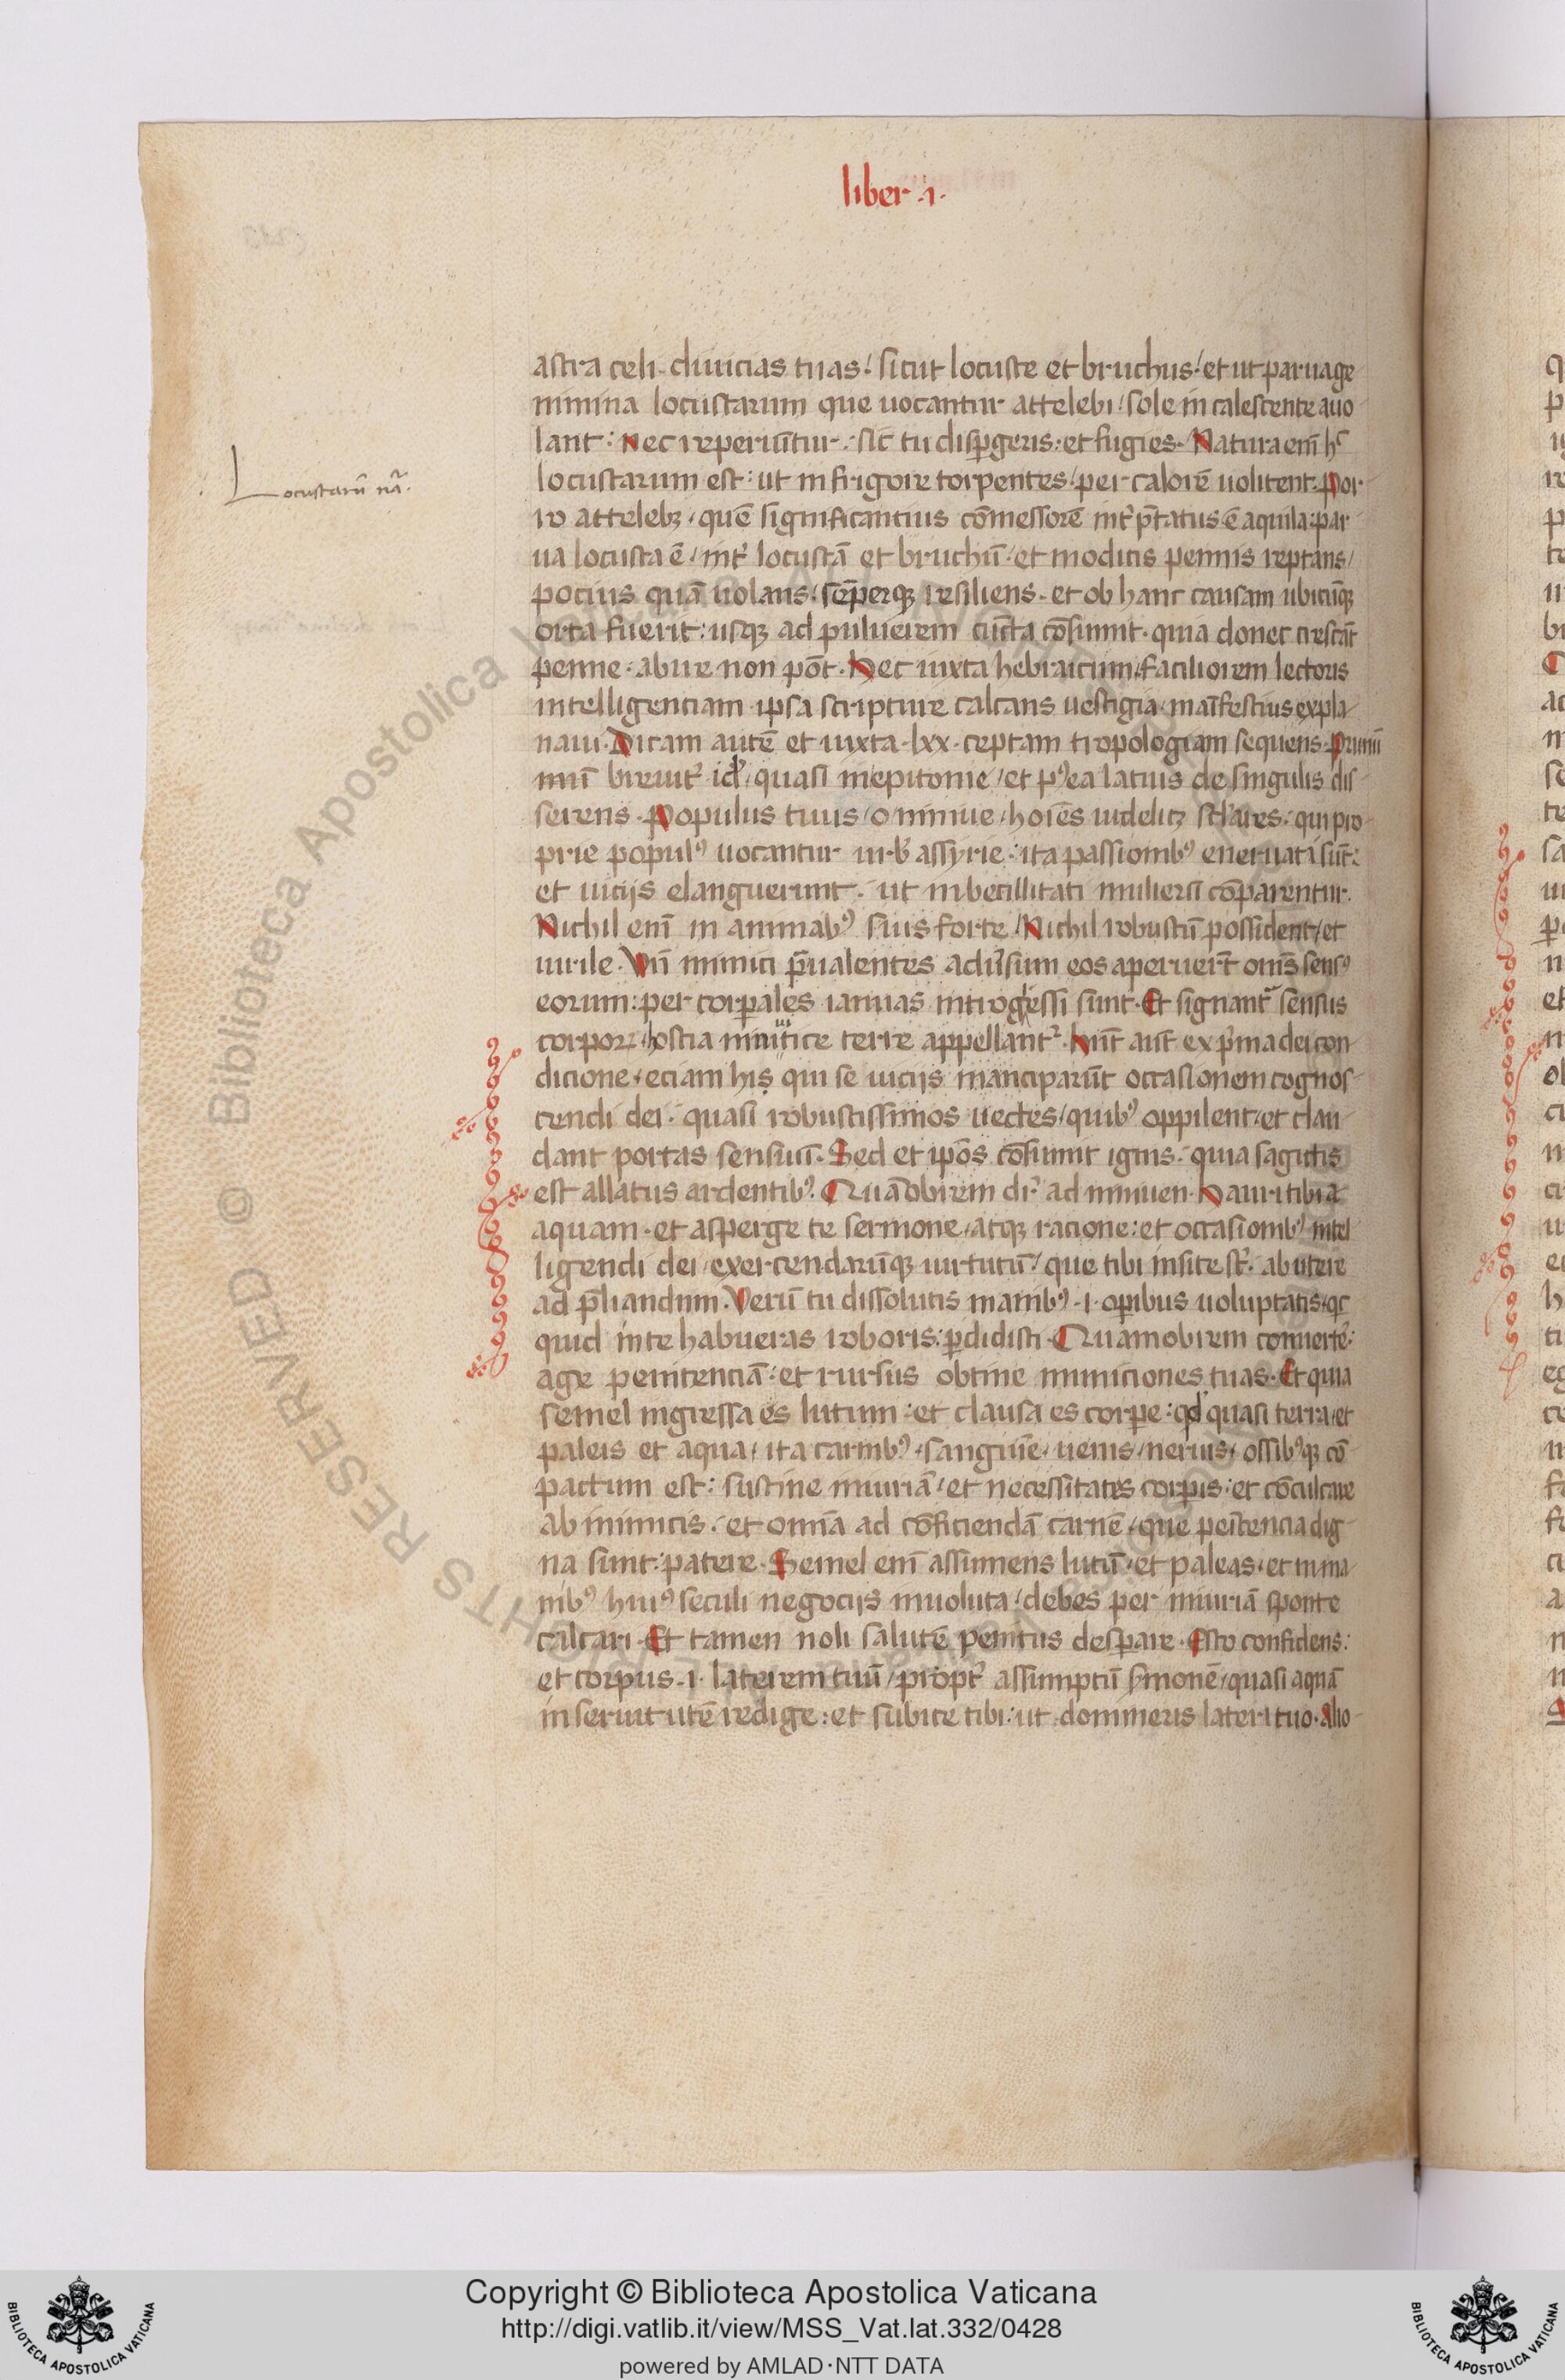 liber .i.
astra celi. diuicias tuas / sicut locuste et bruchus / et ut parua ge
nimina locustarum que uocantur attelebi / sole incalescente auo
lant: Nec reperiu̅tur. sic tu disp̲geris: et fugies. Natura em̅ hec
Locustaru̅ na̅.
locustarum est: ut in frigore torpentes / per calore̅ uolitent. Por
ro attelebꝫ, que̅ significantius co̅messore̅ int̉p̅tatus e̅ aquila: par
ua locusta e̅ / int̉ locusta̅ et bruchu̅: et modicis pennis reptans /
pocius qua̅ uolans / se̅perqꝫ resiliens. et ob hanc causam ubicu̅qꝫ
orta fuerit: usqꝫ ad puluerem cu̅cta co̅sumit. quia donec cresca̅t
penne. abire non po̅t. Hec iuxta hebraicum / faciliorem lectoris
intelligenciam ipsa scripture calcans uestigia / ma̅ifestius expla
naui. Dicam aute̅ et iuxta .lxx. ceptam tropologiam sequens. Primu̅
mu̅ breuit̉ id / quasi in epitome / et pꝰea latius de singulis dis
serens. Populus tuus / o niniue / ho̅ies uidelicꝫ sc̅l'ares. qui pro
prie populꝰ uocantur urb̉ assyrie: ita passionibꝰ eneruati su̅t:
et uicijs elanguerunt. ut inbecillitati mulieru̅ co̅parentur.
Nichil eni̅ in animabꝰ suis forte / Nichil robustu̅ possident / et
uirile. Vn̅ inimici p̅ualentes adủsum eos aperuer̅t om̅s sensꝰ
eorum: per corp̲ales ianuas introgressi sunt. Et signant̉ sensus
corporꝫ / hostia inimice terre appellant̉. Hu̅t aut̅ ex p̉ma dei con
dicione / eciam his qui se uicijs manciparu̅t occasionem cognos
cendi dei. quasi robustissimos uectes / quibꝰ oppilent / et clau
dant portas sensuu̅. Sed et ip̅os co̅sumit ignis. quia sagittis
est allatus ardentibꝰ. Qua̅obrem dr̅ ad niniuen. Hauri tibi
aquam. et asperge te sermone / atqꝫ racione: et occasionibꝰ intel
ligendi dei / exercendaru̅qꝫ uirtutu̅ / que tibi insite s̅t. abutere
ad p̅liandum. Veru̅ tu dissolutis manibꝰ .i. op̲ibus uoluptatis / qc
quid in te habueras roboris: p̲didisti. Quamobrem conuerte̅:
age penitencia̅: et rursus obtine municiones tuas. Et quia
semel ingressa es lutum: et clausa es corpe: qd̉ quasi terra / et
paleis et aqua / ita carnibꝰ / sanguine / uenis / neruis / ossibꝰqꝫ co̅
pactum est: sustine iniuria̅ / et necessitates corp̲is: et co̅culcare
ab inimicis. et omnia ad co̅ficienda̅ carne̅ / que peni̅tencia dig
na sunt: patere. Semel eni̅ assumens lutu̅ / et paleas / et in ma
nibꝰ huiꝰ seculi negocijs inuoluta / debes per iniuria̅ sponte
calcari. Et tamen noli salute̅ penitus desp̲are. Esto confidens:
et corpus .i. laterem tuu̅ / propt̉ assumptu̅ s̉mone̅ / quasi aqua̅
in seruitute̅ redige: et subice tibi: ut domineris lateri tuo. Alio
Copyright © Biblioteca Apostolica Vaticana
http://digi.vatlib.it/view/MSS_Vat.lat.332/0428
powered by AMLAD·NTT DATA